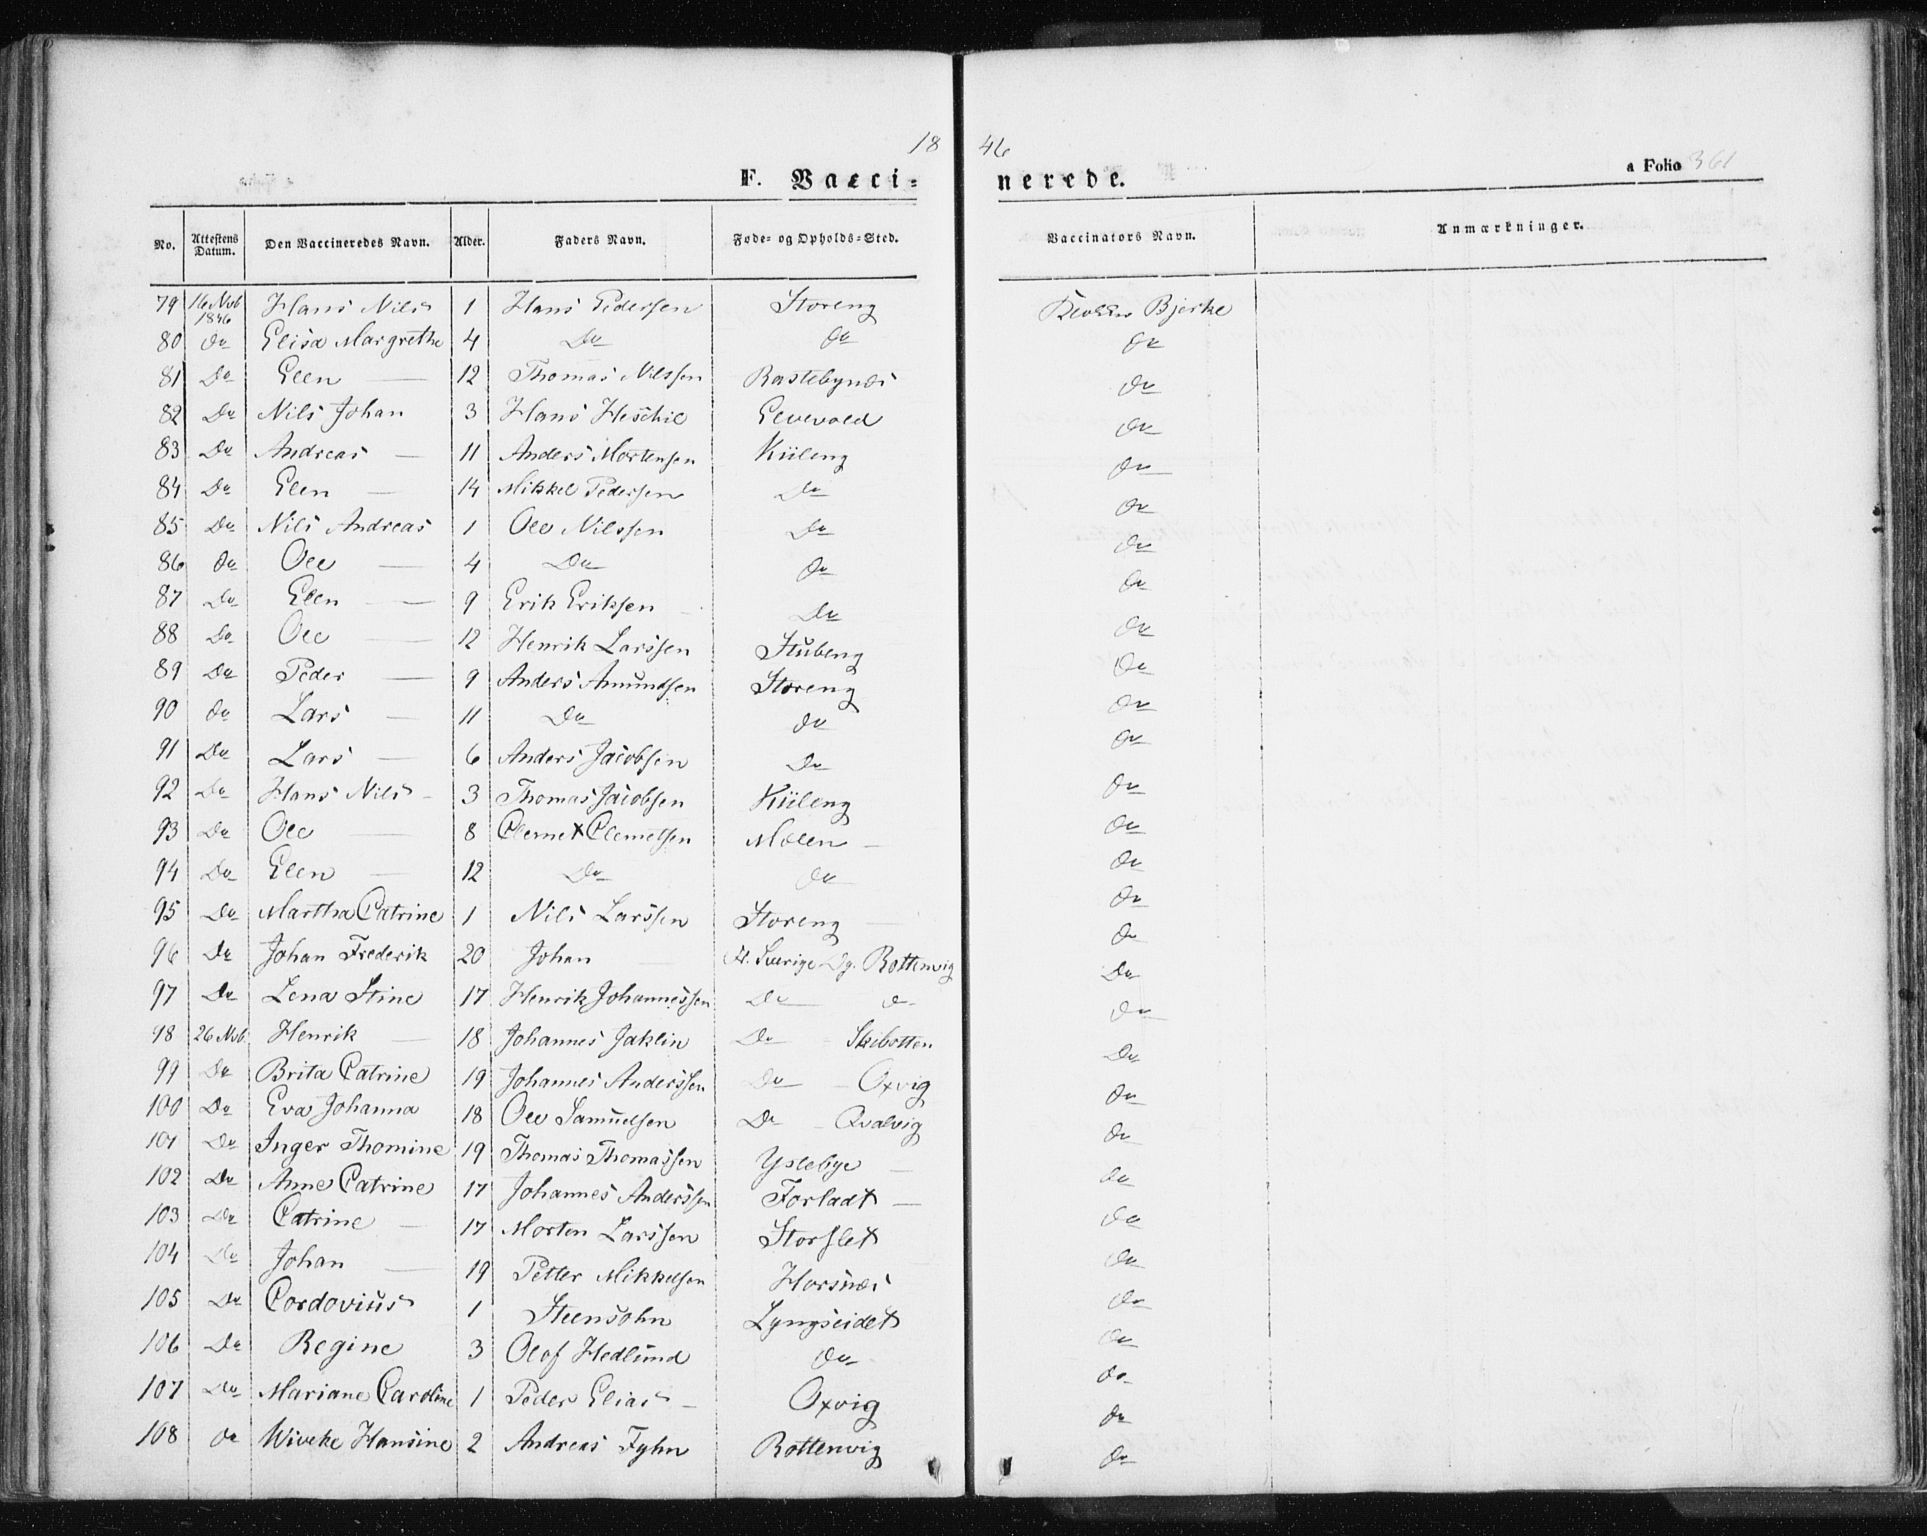 18 46
F. Vacci- nerede.
a Folio 361
No. Attestens Datum. Den Vaccineredes Navn. Alder. Faders Navn. Føde- og Opholds-Sted. Vaccinators Navn. Anmærkninger.
79 16 Nvb 1846 Hans Nils 1 Hans Pedersen Storeng Klokker Bjerke
80 do Elisa Margrethe 4 Do do do
81 Do Elen — 12 Thomas Nilssen Rastebynæs do
82 Do Nils Johan 3 Hans Heschil Elvevold do
83 Do Andreas — 11 Anders Mortensen Kiileng do
84 Do Elen — 14 Mikkel Pedersen Do do
85 Do Nils Andreas 1 Ole Nilssen Do do
86 do Ole — 4 Do do do
87 Do Elen — 9 Erik Eriksen Do do
88 Do Ole — 12 Henrik Larssen Stubeng do
89 Do Peder — 9 Anders Amundsen Storeng do
90 do Lars — 11 Do do do
91 Do Lars — 6 Anders Jacobsen Do do
92 Do Hans Nils 3 Thomas Jacobsen Kiileng do
93 Do Ole — 8 Clemet Clemetsen Molen do
94 Do Elen — 12 Do do do
95 Do Martha Catrine 1 Nils Larssen Storeng do
96 Do Johan Frederik 20 Johan — F. Sverige Og. Rottenvig do
97 Do Lena Stine 17 Henrik Johannessen Do do Do
98 26 Nvb Henrik — 18 Johannes Jaklin Do Skibotten do
99 Do Brita Catrine 19 Johannes Anderssen Do — Oxvig Do
100 Do Eva Johanna 18 Ole Samuelsen Do Qvalvig do
101 Do Inger Thomine 19 Thomas Thomassen Yslebye do
102 Do Anne Catrine 17 Johannes Anderssen Forladt do
103 Do Catrine — 17 Morten Larssen Storslet do
104 Do Johan — 19 Petter Mikkelsen Horsnæs do
105 Do Cordovius 1 Steensohn Lyngseidet do
106 Do Regine 3 Olof Hedlund do do
107 Do Mariane Caroline 1 Peder Elias Oxvig do
108 do Wiveke Hansine 2 Andreas Fyhn Rottenvig do
do